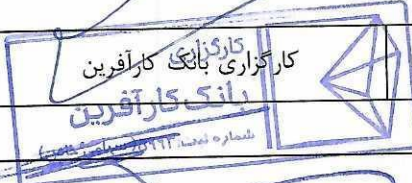 کارگزاری بانک کارآفرین
کارگزاری
بانک کارآفرین
شماره ثبت: